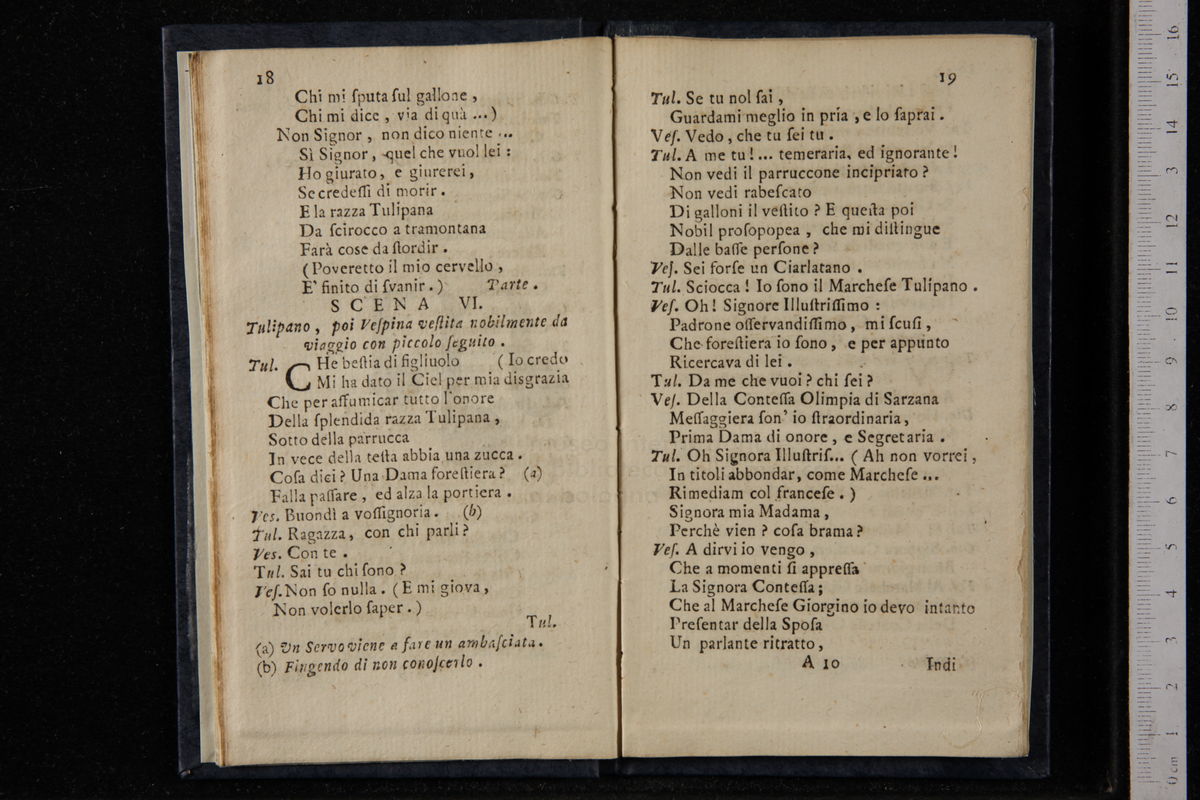 18
Chi mi ſputa ſul gallone ,
Chi mi dice , via di quà ...)
Non Signor , non dico niente ...
Sì Signor , quel che vuol lei :
Ho giurato , e giurerei ,
Se credeſſi di morir .
E la razza Tulipana
Da ſcirocco a tramontana
Farà coſe da ſtordir .
(Poveretto il mio cervello ,
E' finito di ſvanir . ) Parte .
SCENA VI.
Tulipano , poi Veſpina veſtita nobilmente da
viaggio con piccolo ſeguito .
Tul. CHe beſtia di figliuolo ( Io credo
Mi ha dato il Ciel per mia disgrazia
Che per aſſumicar tutto l'onore
Della ſplendida razza Tulipana ,
Sotto della parrucca
In vece della teſta abbia una zucca .
Coſa dici ? Una Dama foreſtiera ? (a)
Falla paſſare , ed alza la portiera .
Ves. Buondì a voſſignoria . (b)
Tul. Ragazza , con chi parli ?
Ves. Con te .
Tul. Sai tu chi ſono ?
Veſ. Non ſo nulla . ( E mi giova ,
Non volerlo ſaper . )
Tul.
(a) Un Servo viene a fare un ambaſciata .
(b) Fingendo di non conoſcerlo .
19
Tul. Se tu nol ſai ,
Guardami meglio in pria , e lo ſaprai .
Veſ. Vedo , che tu ſei tu .
Tul. A me tu ! ... temeraria, ed ignorante !
Non vedi il parruccone incipriato ?
Non vedi rabeſcato
Di galloni il veſtito ? E queſta poi
Nobil proſopopea , che mi diſtingue
Dalle baſſe perſone ?
Veſ. Sei forſe un Ciarlatano .
Tul. Sciocca ! Io ſono il Marcheſe Tulipano .
Veſ. Oh ! Signore Illuſtriſſimo :
Padrone oſſervandiſſimo , mi ſcuſi ,
Che foreſtiera io ſono , e per appunto
Ricercava di lei .
Tul. Da me che vuoi ? chi ſei ?
Veſ. Della Conteſſa Olimpia di Sarzana
Meſſaggiera ſon' io ſtraordinaria ,
Prima Dama di onore , e Segretaria .
Tul. Oh Signora Illuſtriſ... ( Ah non vorrei ,
In titoli abbondar, come Marcheſe ...
Rimediam col franceſe . )
Signora mia Madama ,
Perchè vien ? coſa brama ?
Veſ. A dirvi io vengo ,
Che a momenti ſi appreſſa
La Signora Conteſſa ;
Che al Marcheſe Giorgino io devo intanto
Preſentar della Spoſa
Un parlante ritratto ,
A 10 Indi
0 cm 1 2 3 4 5 6 7 8 9 10 11 12 13 14 15 16